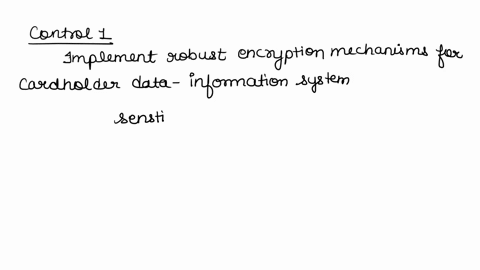 Control 1
Implement robust encryption mechanisms for
cardholder data - information system
sensti